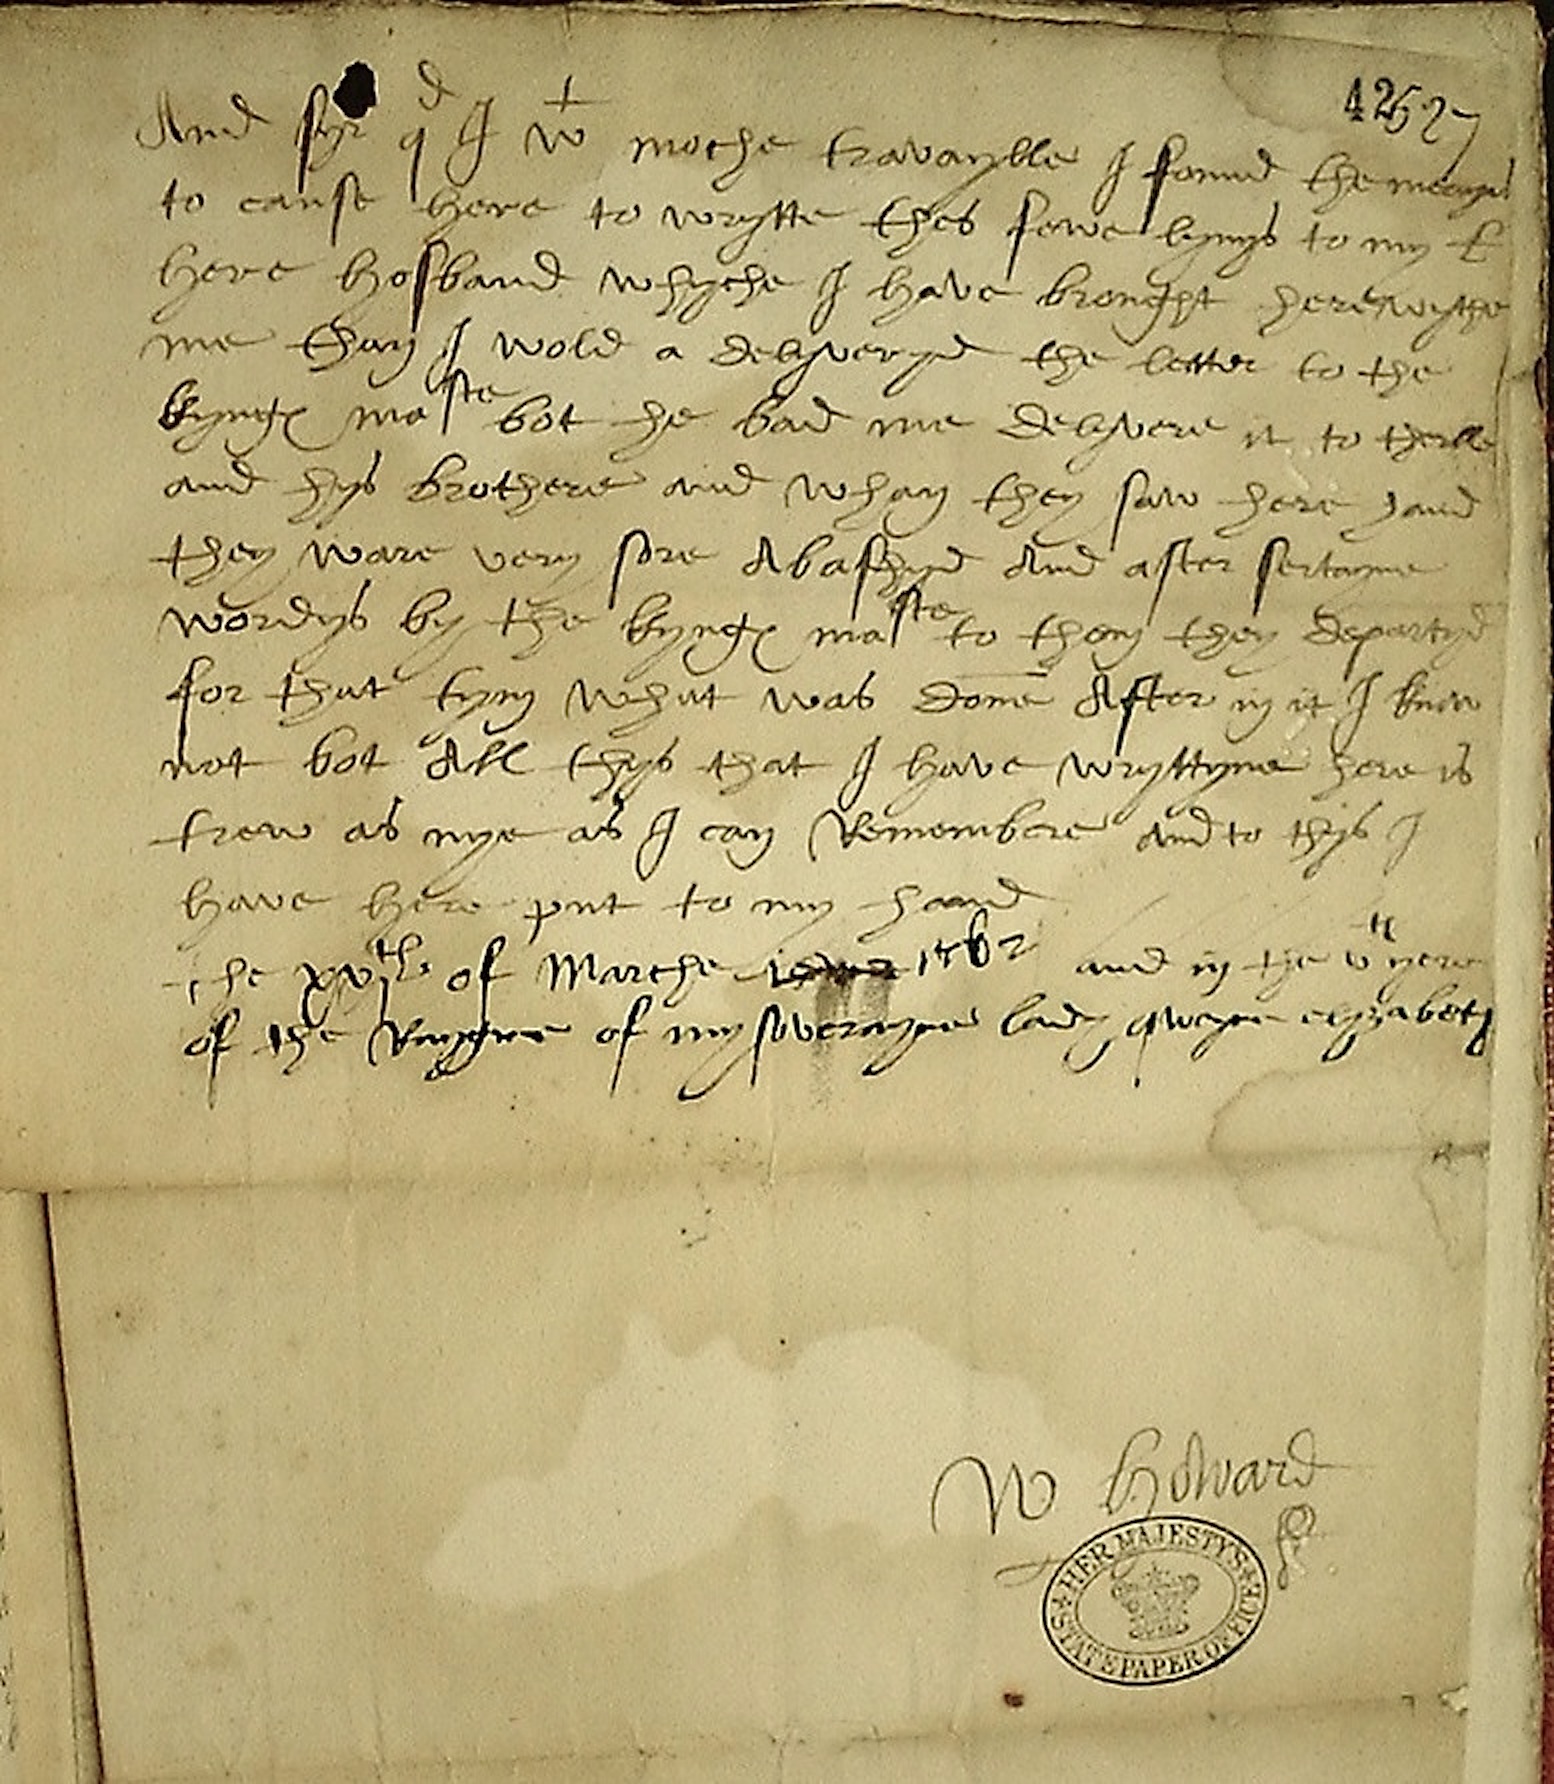 42 527
And syr qd I wt moche travaylle I found the meanys
to cause here to wrytte thes fewe lynys to my L
here hosband whyche I have brought herewythe
me than I wold a delyveryd the letter to the
kyngs maste bot he bad me delyvere it to therlle
and hys brothere and whan they saw here hand
they ware very sore Abashyd And after sertayne
wordys by the kyngs maste to them they departyd
for that tym what was done After in it I know
not bot All thys that I have wryttyne here is
trew as nye as I can Remembere and to thys I
have here put to my hand
the xvth of Marche 1562 and in the vth yere
of the Raygne of my soverayne lady qweyne elyzabeth
W Howard
HER MAJESTY'S STATE PAPER OFFICE